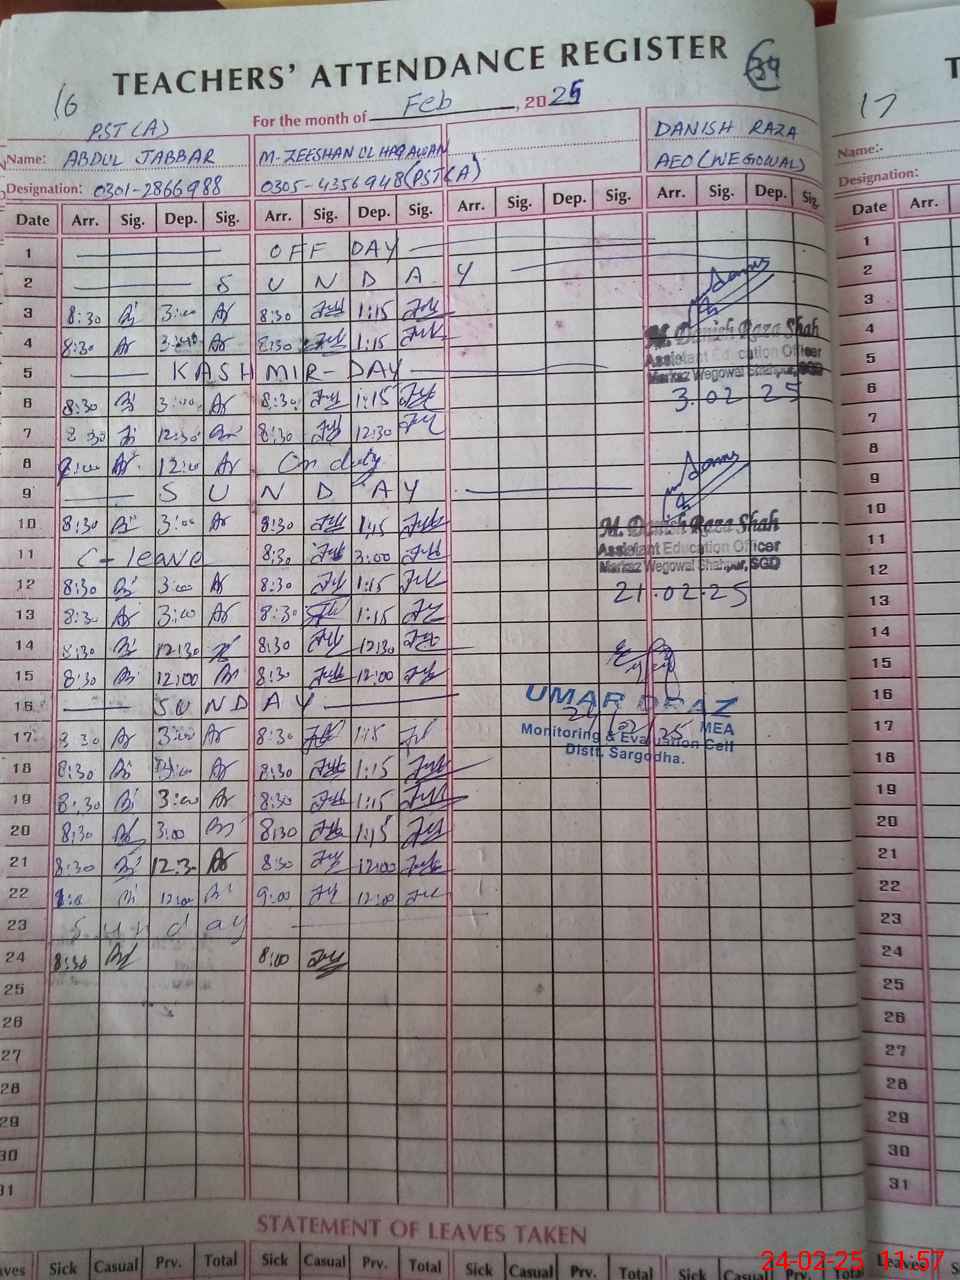 TEACHERS' ATTENDANCE REGISTER
16
17
For the month of Feb, 2025
PST(A)
Name: ABDUL JABBAR M-ZEESHAN UL HAQ AWAN DANISH RAZA
Name:-
Designation: 0301-2866988 0305-4356948(PST(A) AEO(WEGOWAL)
Designation:
Date Arr. Sig. Dep. Sig. Arr. Sig. Dep. Sig. Arr. Sig. Dep. Sig. Arr. Sig. Dep. Sig. Date Arr.
1 OFF DAY 1
2 S U N D A Y 2
3 8:30 3:00 8:30 1:15 3
4 8:30 3:00 8:30 1:15 4
M. Danish Raza Shah
Assistant Education Officer
Markaz Wegowal Shahpur, SGD
3.02 25
5 KASHMIR-DAY 5
6 8:30 3:00 8:30 1:15 6
7 8:30 12:30 8:30 12:30 7
8 9:00 12:00 On duty 8
9 S U N D A Y 9
10 8:30 3:00 8:30 1:15 10
M. Danish Raza Shah
Assistant Education Officer
Markaz Wegowal Shahpur, SGD
21.02.25
11 C-leave 8:30 3:00 11
12 8:30 3:00 8:30 1:15 12
13 8:30 3:00 8:30 1:15 13
14 8:30 12:30 8:30 12:30 14
15 8:30 12:00 8:30 12:00 15
16 S U N D A Y 16
UMAR DRAZ
MEA
Monitoring & Evaluation Cell
Distt. Sargodha.
17 8:30 3:00 8:30 1:15 17
18 8:30 3:00 8:30 1:15 18
19 8:30 3:00 8:30 1:15 19
20 8:30 3:00 8:30 1:15 20
21 8:30 12:30 8:30 12:00 21
22 12:00 9:00 12:00 22
23 S u n d a y 23
24 8:30 8:00 24
25 25
26 26
27 27
28 28
29 29
30 30
31 31
STATEMENT OF LEAVES TAKEN
Sick Casual Prv. Total Sick Casual Prv. Total Sick Casual Prv. Total Sick Casual Prv. Total Leaves
24-02-25 11:57